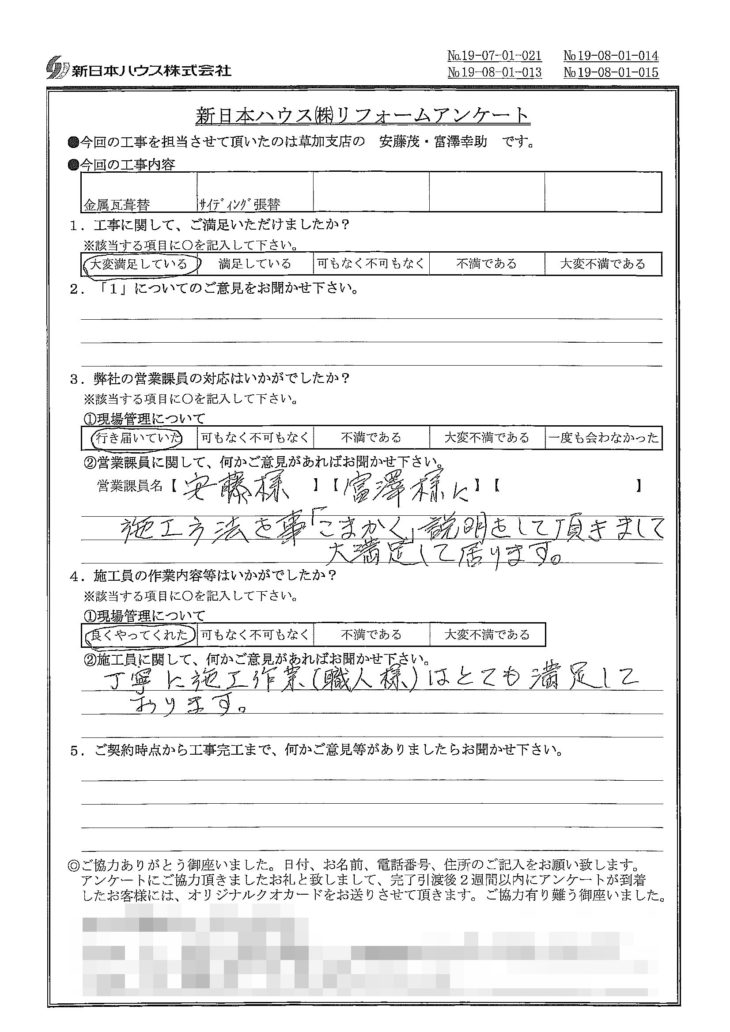 新日本ハウス株式会社
No.19-07-01-021 No19-08-01-014
No19-08-01-013 No19-08-01-015
新日本ハウス㈱リフォームアンケート
●今回の工事を担当させて頂いたのは草加支店の 安藤茂・富澤幸助 です。
●今回の工事内容
金属瓦葺替 ｻｲﾃﾞｨﾝｸﾞ張替
1．工事に関して、ご満足いただけましたか？
※該当する項目に○を記入して下さい。
大変満足している 満足している 可もなく不可もなく 不満である 大変不満である
2．「1」についてのご意見をお聞かせ下さい。
3．弊社の営業課員の対応はいかがでしたか？
※該当する項目に○を記入して下さい。
①現場管理について
行き届いていた 可もなく不可もなく 不満である 大変不満である 一度も会わなかった
②営業課員に関して、何かご意見があればお聞かせ下さい。
営業課員名【 安藤様 】【 富澤様に 】【 】
施工方法を事「こまかく」説明をして頂きまして
大満足して居ります。
4．施工員の作業内容等はいかがでしたか？
※該当する項目に○を記入して下さい。
①現場管理について
良くやってくれた 可もなく不可もなく 不満である 大変不満である
②施工員に関して、何かご意見があればお聞かせ下さい。
丁寧に施工作業(職人様)はとても満足して
おります。
5．ご契約時点から工事完工まで、何かご意見等がありましたらお聞かせ下さい。
◎ご協力ありがとう御座いました。日付、お名前、電話番号、住所のご記入をお願い致します。
アンケートにご協力頂きましたお礼と致しまして、完了引渡後2週間以内にアンケートが到着
したお客様には、オリジナルクオカードをお送りさせて頂きます。ご協力有り難う御座いました。